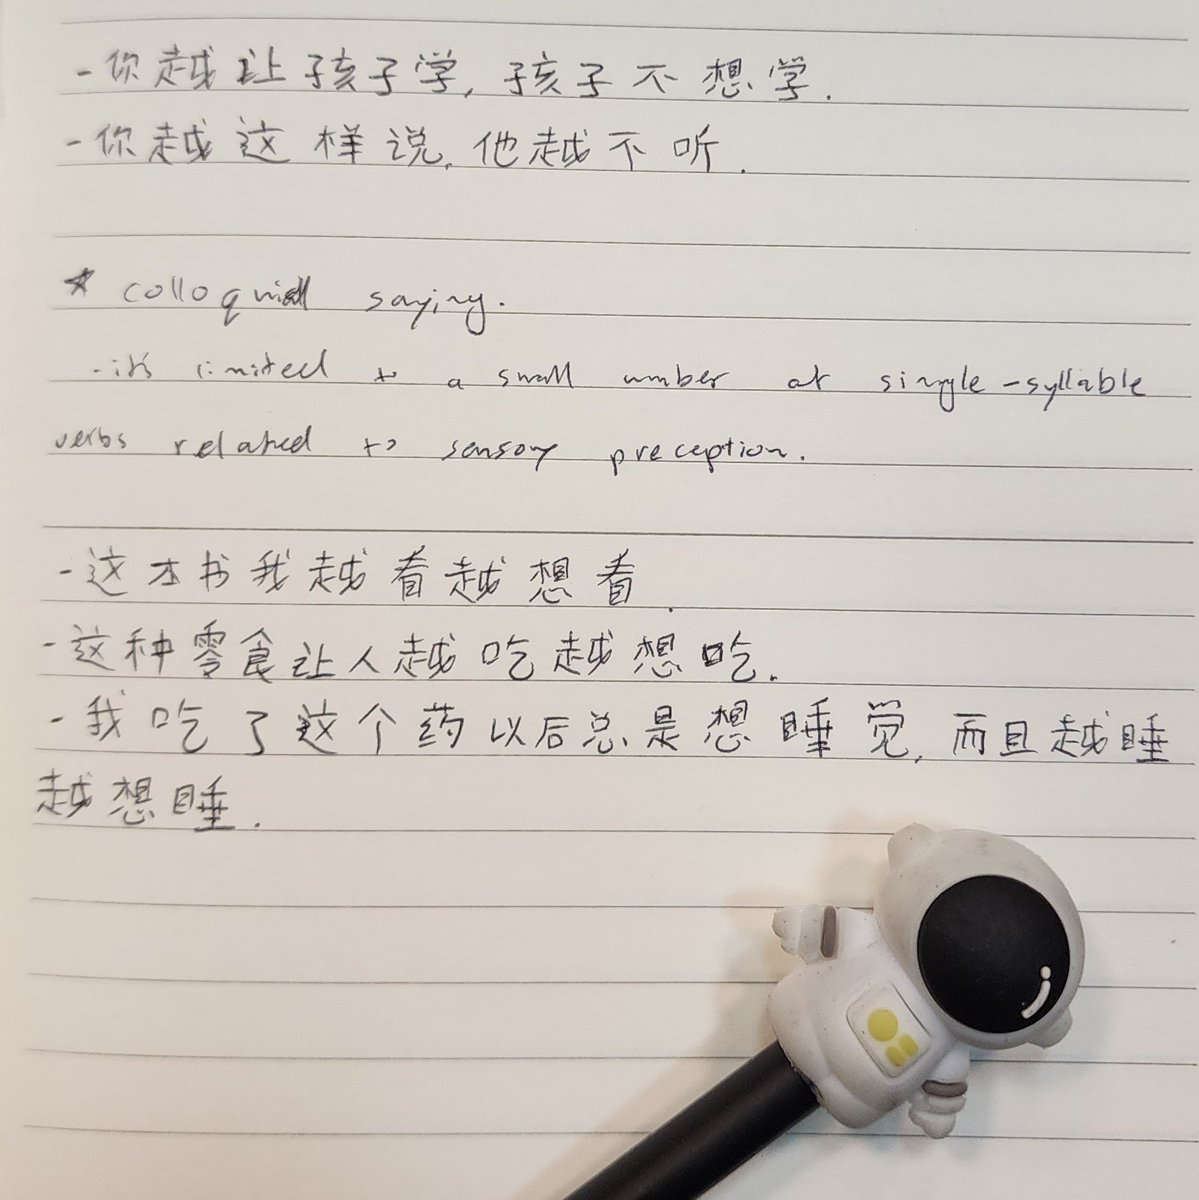 - 你越让孩子学, 孩子不想学.
- 你越这样说, 他越不听.
* colloquial saying.
- it's limited to a small number at single-syllable
verbs related to sensory preception.
- 这本书我越看越想看.
- 这种零食让人越吃越想吃.
- 我吃了这个药以后总是想睡觉, 而且越睡
越想睡.